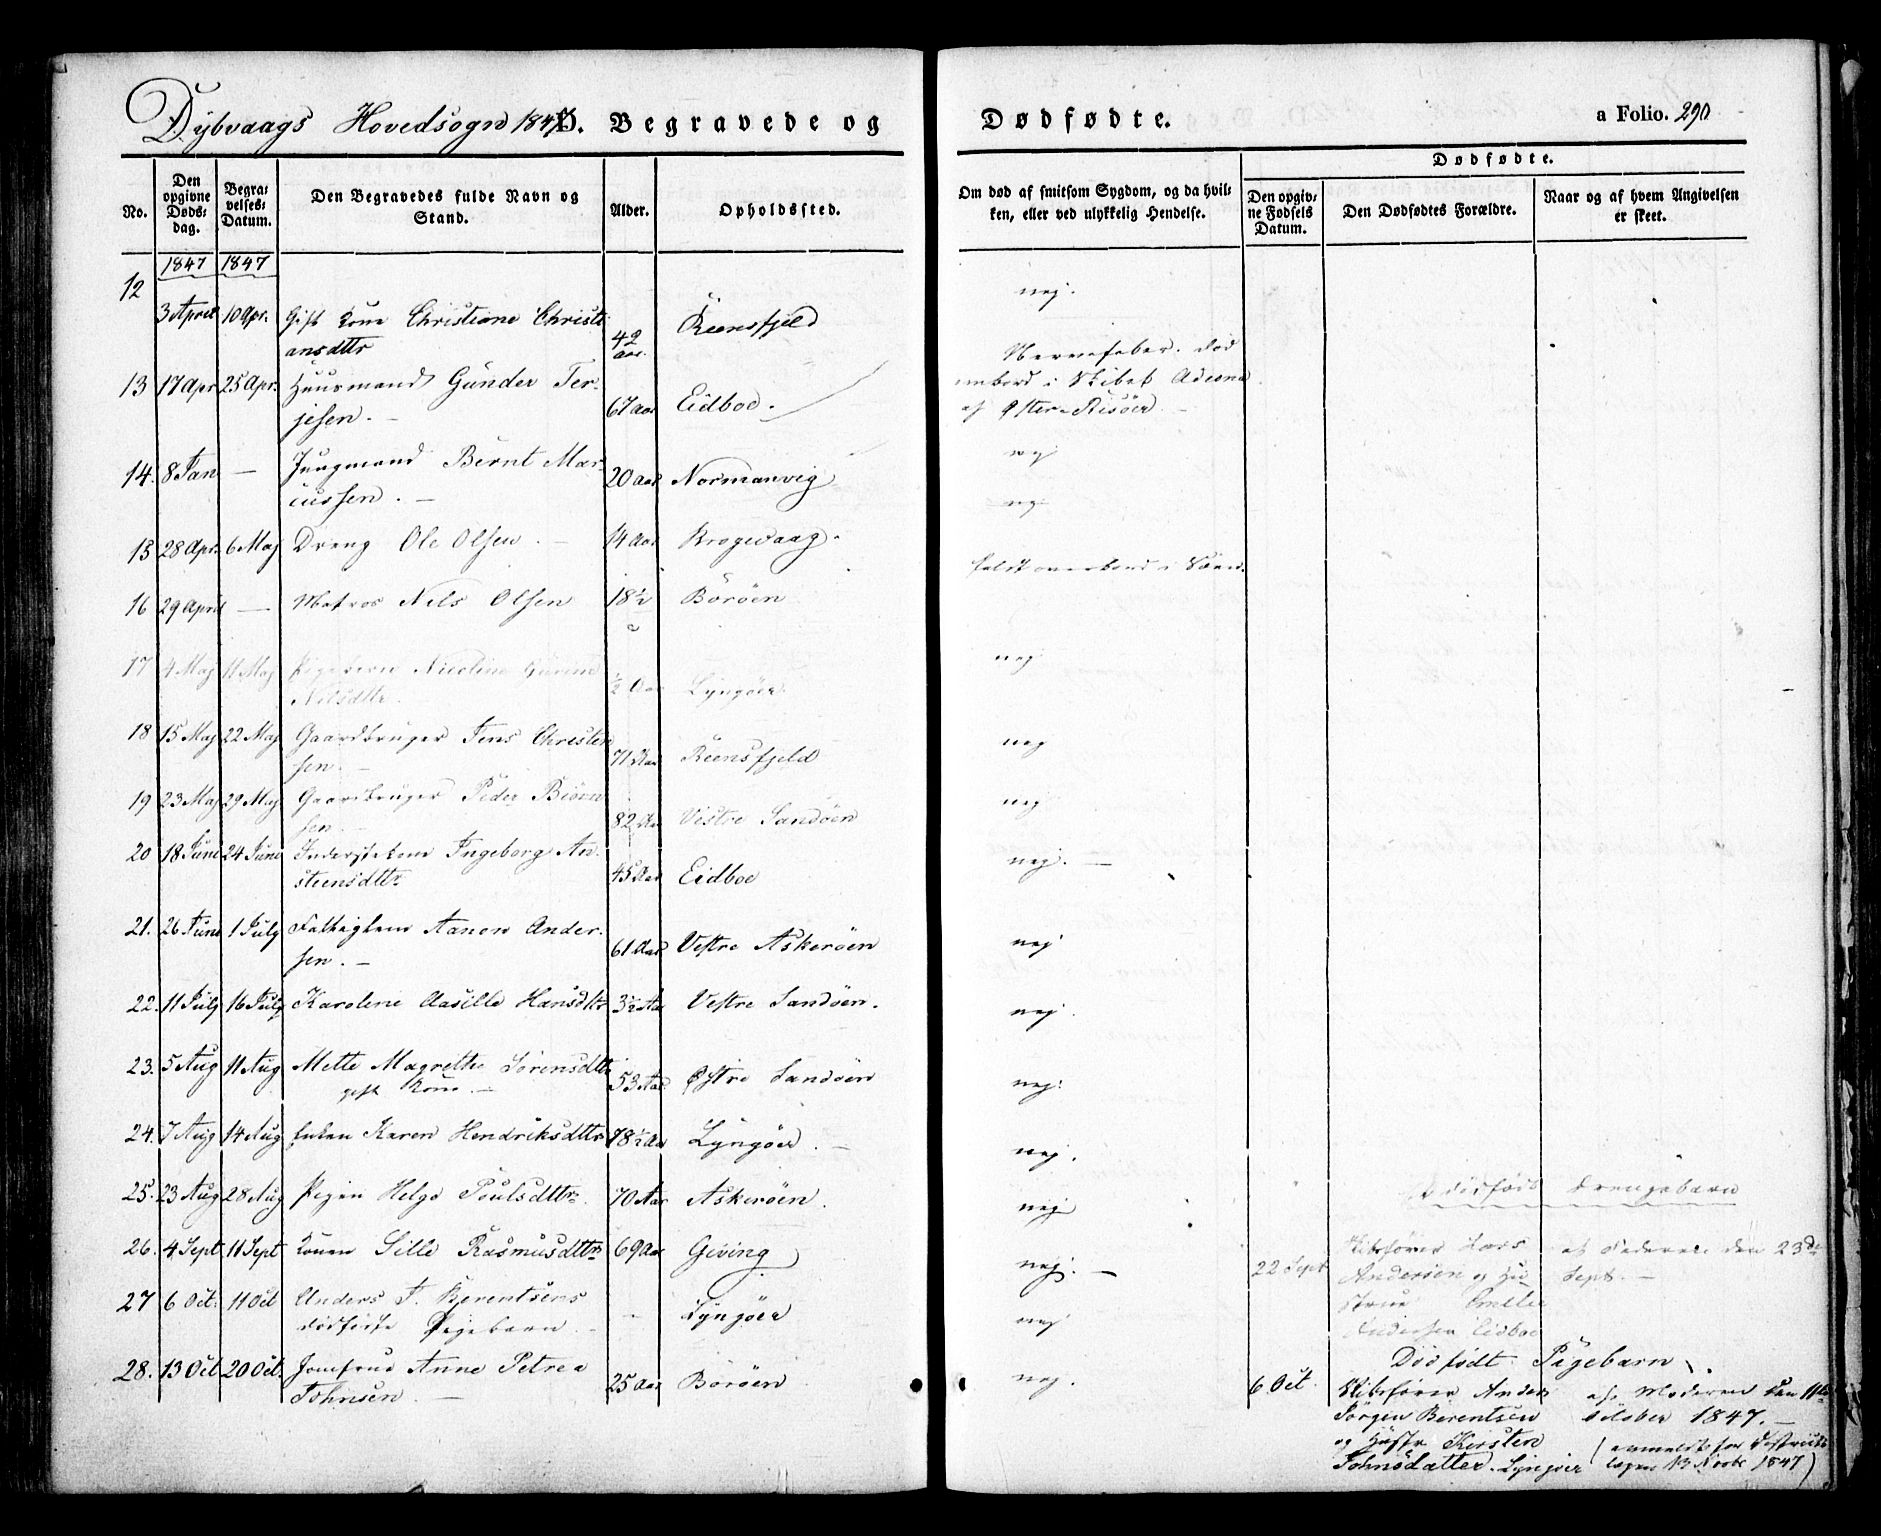 Dybvaags Hovedsogn 1847. D. Begravede og Dødfødte. a Folio. 290
No.
Den opgivne Døds-dag.
Begra-velses-Datum.
Den Begravedes fulde Navn og Stand.
Alder.
Opholdssted.
Om død af smitsom Sygdom, og da hvil-ken, eller ved ulykkelig Hendelse.
Dødfødte.
Den opgiv-ne Fødsels Datum.
Den Dødfødtes Forældre.
Naar og af hvem Angivelsen er skeet.
1847 1847
12 3 April 10 Apr. Gift Kone Christiane Christi
ansdttr 42 Aar. Reensfjeld nej.
13 17 Apr 25 Apr. Huusmand Gunder Ter-
jesen. - 67 Aar Eidboe.
Nervefeber. død
ombord i Skibet Adeona
af Øster-Risöer. -
14. 8 Jan — Jungmand Bernt Mar-
cussen. - 20 Aar Normanvig
nej
15 28 Apr. 6 Maj Dreng Ole Olsen. - 14 Aar Krogevaag.
nej
16 29 April — Matros Nils Olsen 18½ Böröen
faldt overbord i Söen.
17 4 Maj 11 Maj Pigebarn Nicoline
Nilsdttr. ½ Aar Lyngöer. nej
18 15 Maj 22 Maj Gaardbruger Jens Christen
sen. - 71 Aar Reensfjeld nej
19 23 Maj 29 Maj Gaardbruger Peder Biörn
sen. - 82 Aar Vestre Sandöen nej
20 18 Juni 24 Juni Ingeborg An-
steensdttr 45 Aar Eidboe nej. —
21. 26 Juni 1 July Aanon Ander-
sen. - 61 Aar Vestre Askeröen nej
22. 11 July 16 July Karoline Aasille Hansdttr 3½ Aar Vestre Sandöen. nej.
23. 5 Aug 11 Aug Mette Magrethe Sörensdttr
gift Kone. - 53 Aar Østre Sandöen nej.
24. 7 Aug 14 Aug Enken Karen Hendriksdttr 78½ Aar Lyngöer. - nej.
25. 23 Aug 28 Aug Pigen Helge Poulsdttr. 70 Aar Askeröen. nej
26. 4 Sept 11 Sept Konen Sille Rasmusdttr 69 Aar Geving nej. —
27 6 Oct. 11 Oct Anders J. Berentsens
dödfödte Pigebarn. - Lyngöer nej
28. 13 Oct 20 Oct. Jomfrue Anne Petrea
Johnsen. — 25 Aar Böröen nej.
dödfödt Drengebarn
22 Sept Skibsförer Lars
Andersen og Hu
strue Emilie
Andersen Eidboe
af Faderen den 23de
Sept. —
Dödfödt Pigebarn.
6 Oct. Skibsförer Anders
Jörgen Berentsen
og Hustr Kirsten
Johnsdatter. Lyngöer
af Moderen den 11te
October 1847. -
(anmeldt for Districts
lægen 13 Novbr 1847)